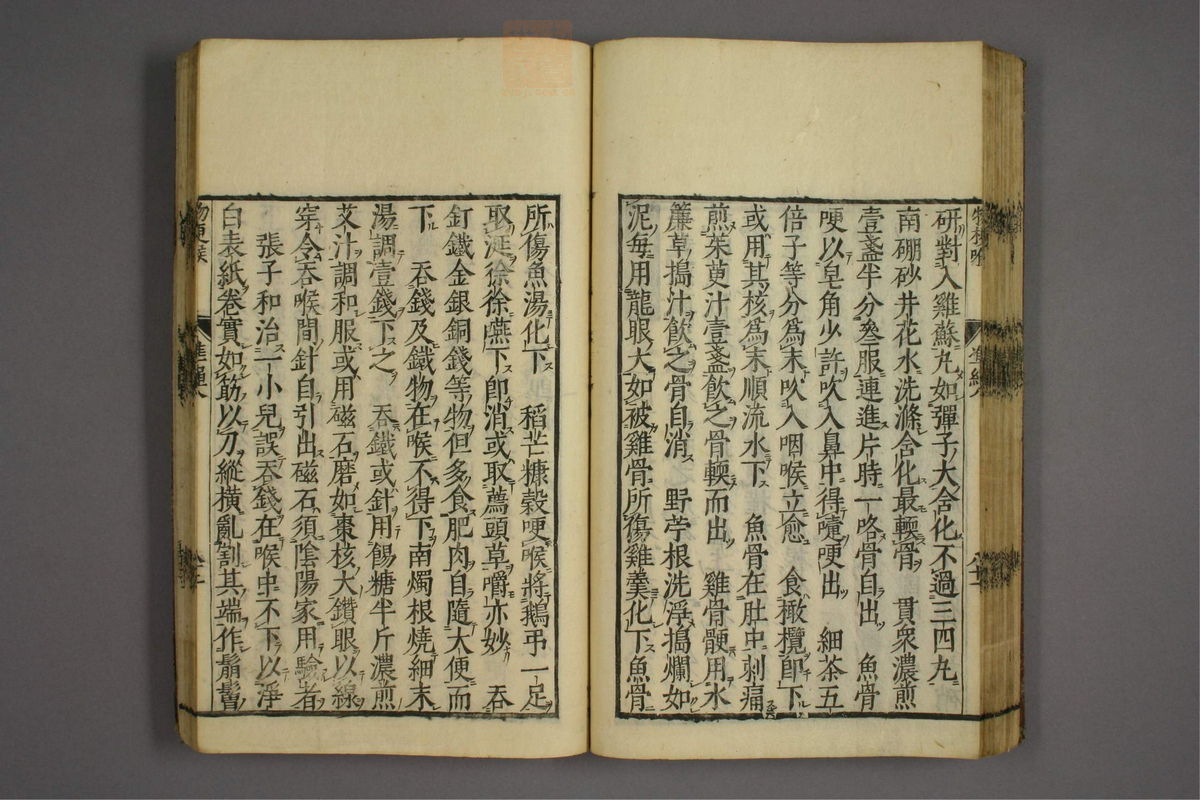 研對入雞蘇丸如彈子大含化不過三四丸
南硼砂井花水洗滌含化最軟骨　貫衆濃煎
壹盞半分叄服連進片時一咯骨自出　魚骨
哽以皂角少許吹入鼻中得嚏哽出　細茶五
倍子等分爲末吹入咽喉立愈　食橄欖即下
或用其核爲末順流水下　魚骨在肚中刺痛
煎茱萸汁壹盞飲之骨軟而出　雞骨骾用水
簾草搗汁飲之骨自消　野苧根洗浮搗爛如
泥每用龍眼大如被雞骨所傷雞羹化下魚骨
所傷魚湯化下　稻芒糠穀哽喉將鵝弔一足
取涎徐徐嚥下即消或取薦頭草嚼亦妙　吞
釘鐵金銀銅錢等物但多食肥肉自隨大便而
下　吞錢及鐵物在喉不得下南燭根燒細末
湯調壹錢下之　吞鐵或針用餳糖半斤濃煎
艾汁調和服或用磁石磨如棗核大鑽眼以線
穿令吞喉間針自引出磁石須陰陽家用驗者
張子和治一小兒誤吞錢在喉中不下以淨
白表紙卷實如筯以刀縱橫亂割其端作鬅鬙